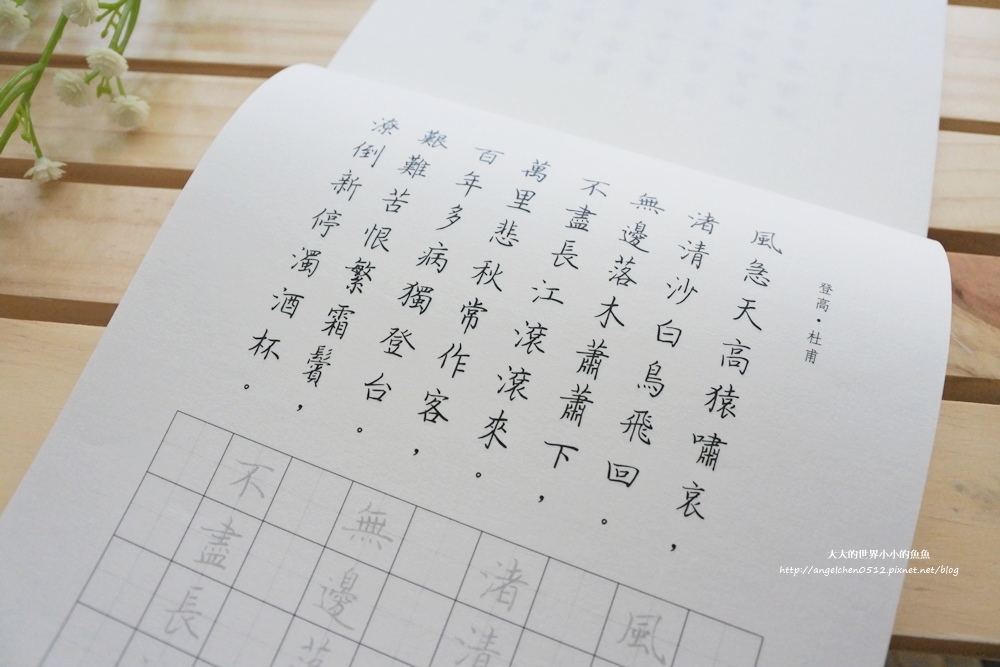 登高・杜甫
風急天高猿嘯哀，
渚清沙白鳥飛回。
無邊落木蕭蕭下，
不盡長江滾滾來。
萬里悲秋常作客，
百年多病獨登台。
艱難苦恨繁霜鬢，
潦倒新停濁酒杯。
風
渚清
無邊落
不盡長
大大的世界小小的魚魚
http://angelchen0512.pixnet.net/blog